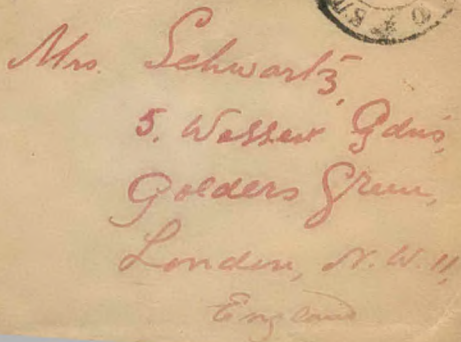 Mrs. Schwartz,
5. Wessex Gdns,
Golders Green,
London, N.W. 11,
England